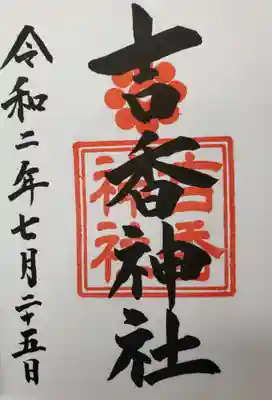 吉香神社
令和二年七月二十五日
吉香
神社